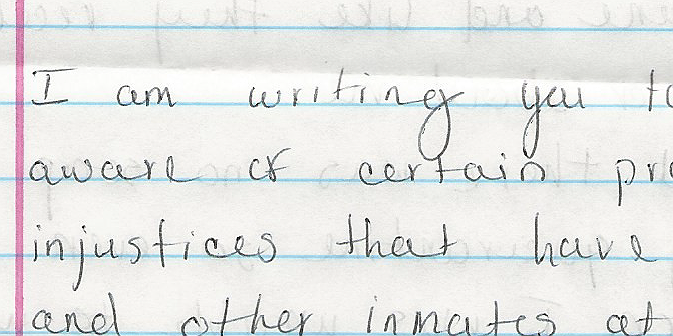 I am writing you to
aware of certain
injustices that have
and other inmates at